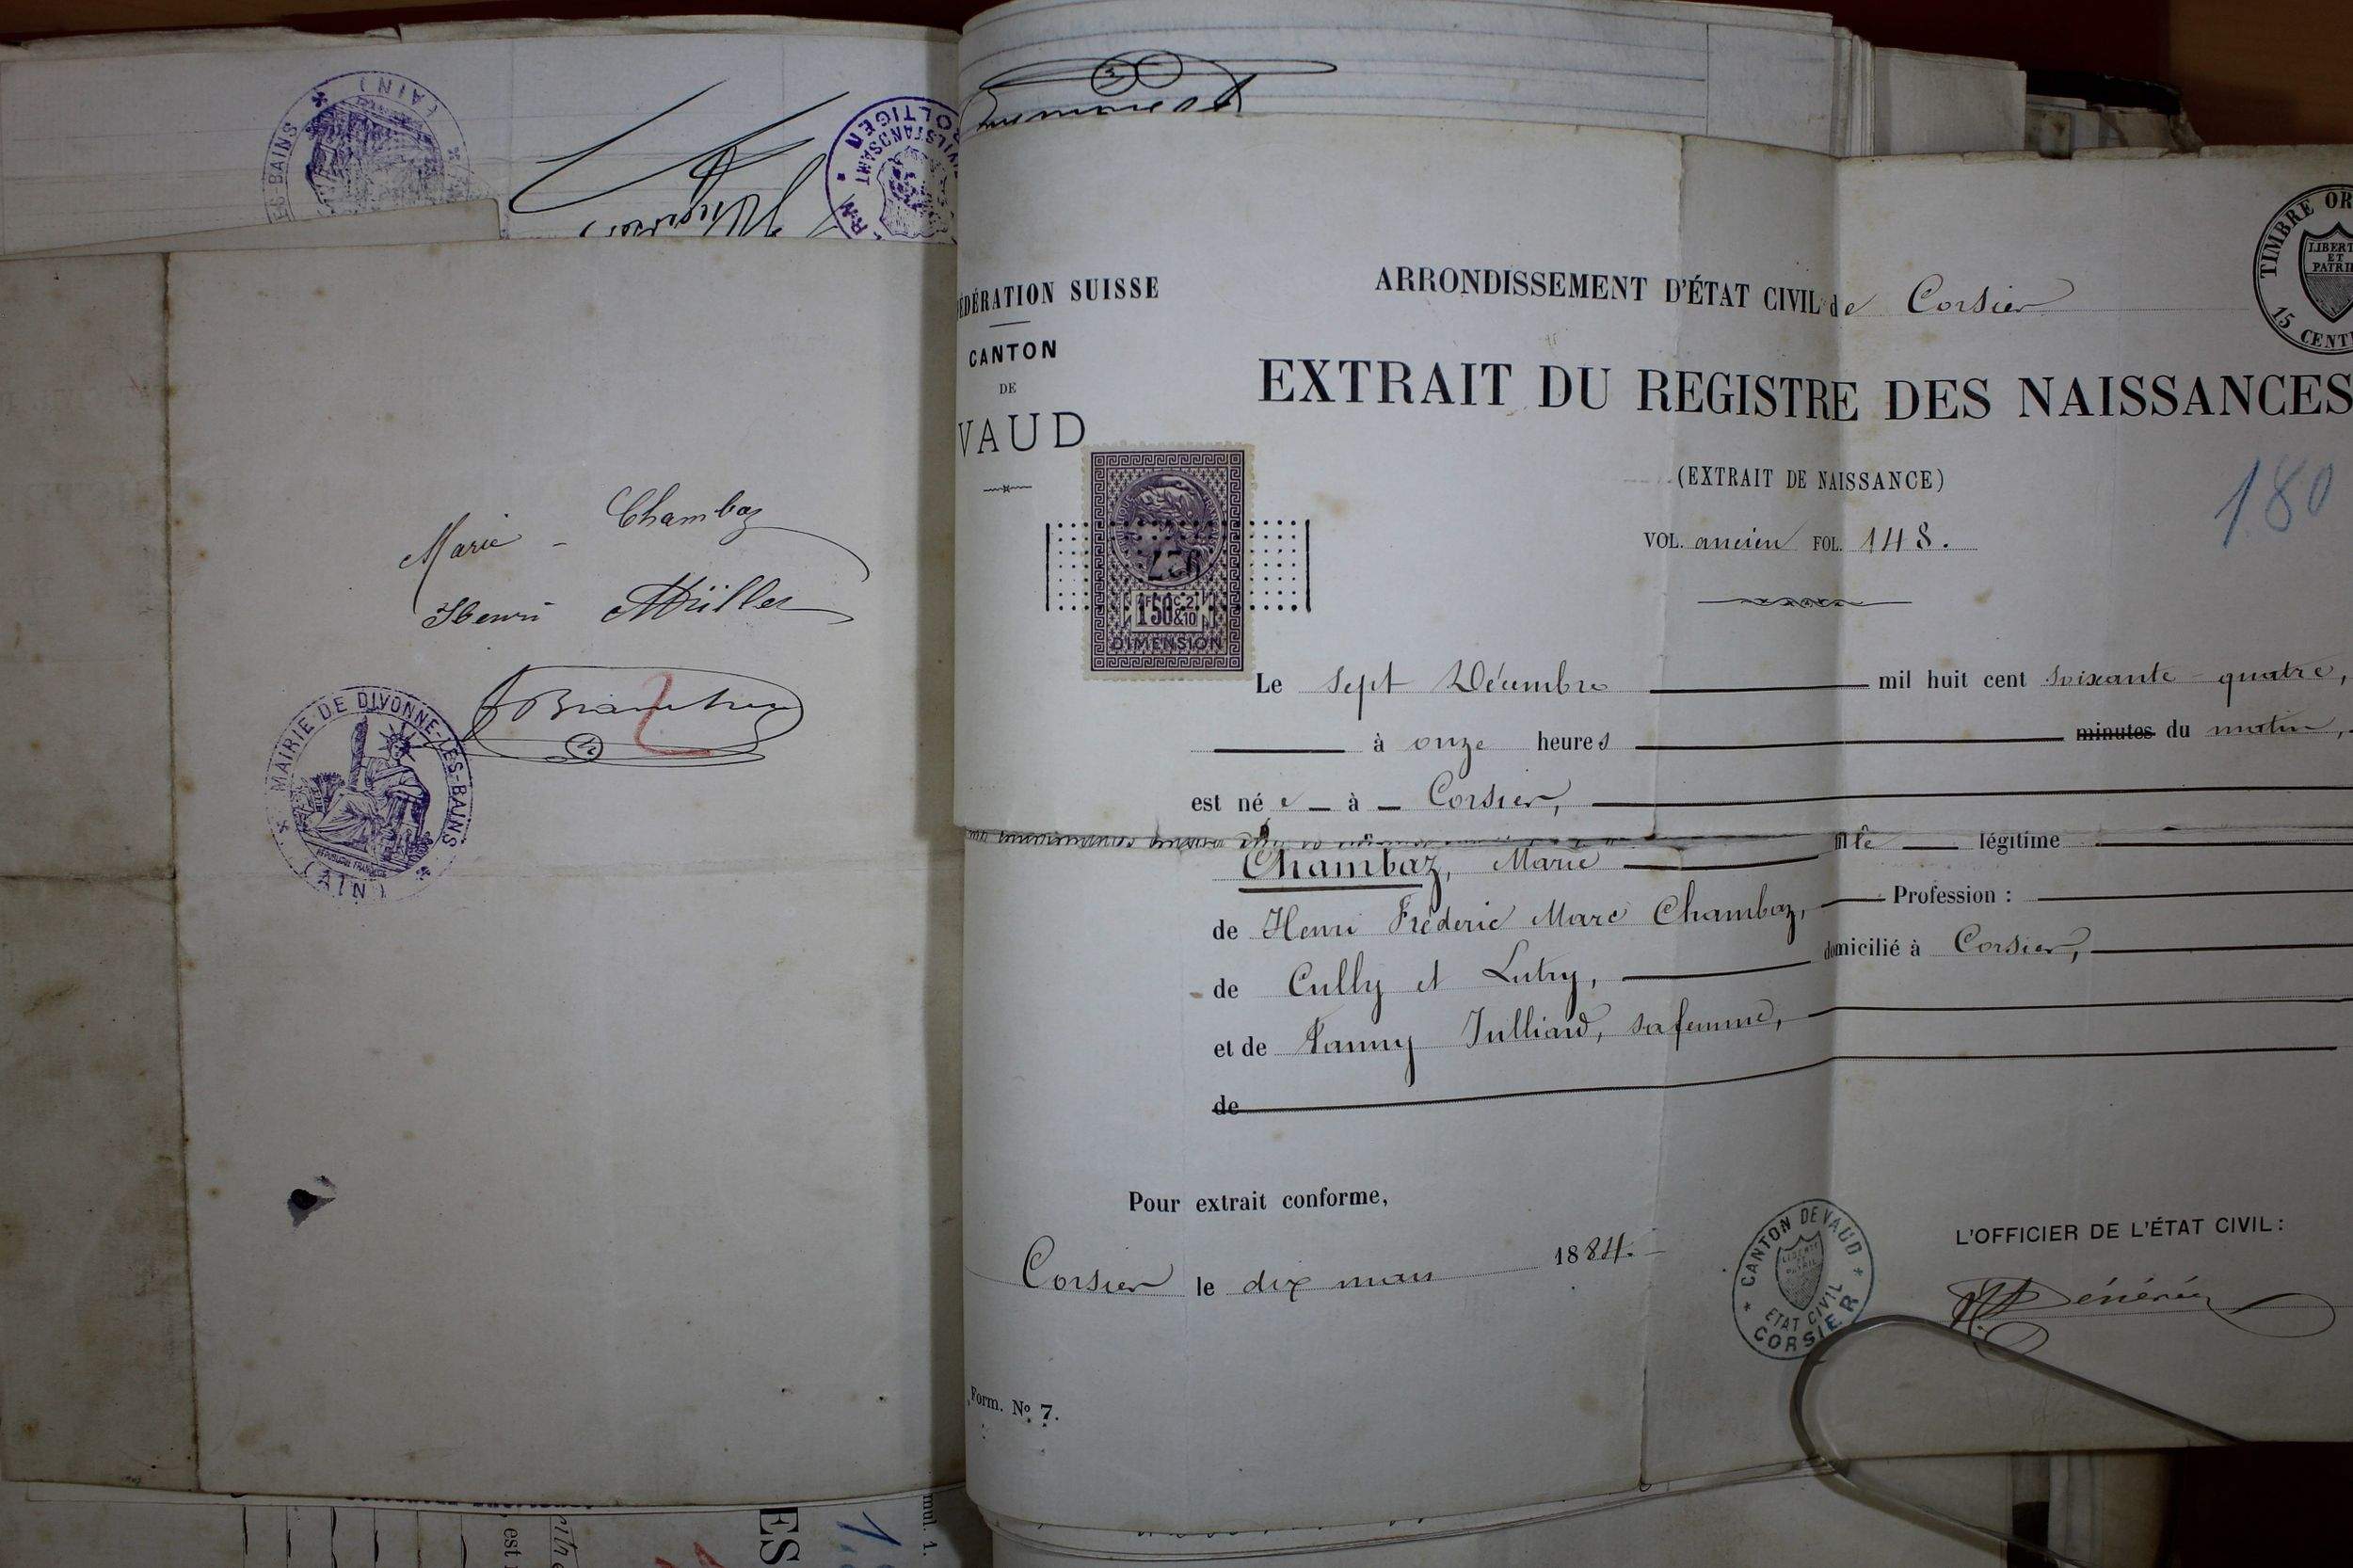 (AIN)
ES-BAINS
ROLTIGEN
Marie - Chambaz
Henri Müller
MAIRIE DE DIVONNE-LES-BAINS
RÉPUBLIQUE FRANÇAISE
(AIN)
ÉDÉRATION SUISSE
CANTON
DE
VAUD
ARRONDISSEMENT D'ÉTAT CIVIL de Corsier
TIMBRE OR
LIBERT
ET
PATRIE
15 CENTI
EXTRAIT DU REGISTRE DES NAISSANCES
(EXTRAIT DE NAISSANCE)
180
VOL. ancien FOL. 148.
1F50&2/10
DIMENSION
Le sept Décembre mil huit cent soixante-quatre,
à onze heures minutes du matin,
est née à Corsier,
Chambaz, Marie fille légitime
de Henri Fréderic Marc Chambaz, Profession :
de Cully et Lutry, domicilié à Corsier,
et de Fanny Julliard, sa femme,
de
Pour extrait conforme,
Corsier le dix mars 1884.
CANTON DE VAUD
LIBERTÉ
ET
PATRIE
ETAT CIVIL
CORSIER
L'OFFICIER DE L'ÉTAT CIVIL :
Form. No 7.
mul. 1.
ES
, est